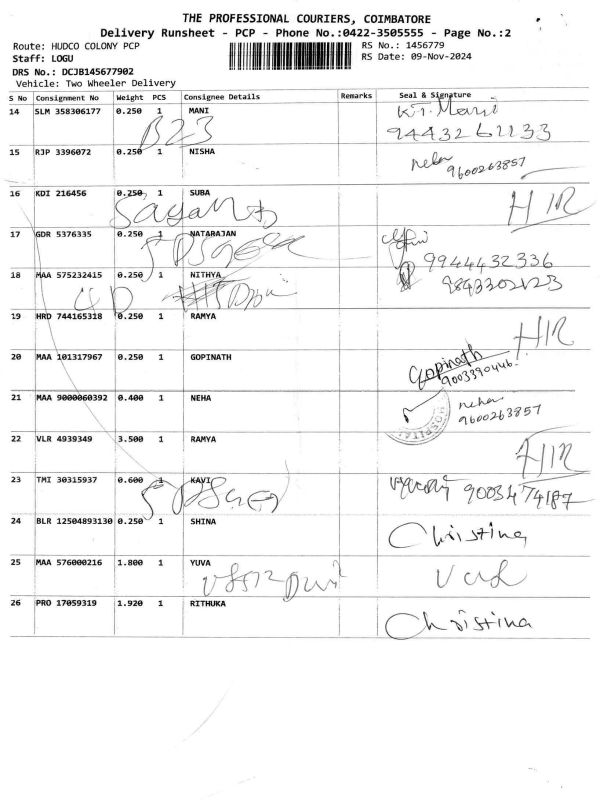 THE PROFESSIONAL COURIERS, COIMBATORE
Delivery Runsheet - PCP - Phone No.:0422-3505555 - Page No.:2
Route: HUDCO COLONY PCP
RS No.: 1456779
Staff: LOGU
RS Date: 09-Nov-2024
DRS No.: DCJB145677902
Vehicle: Two Wheeler Delivery
S No Consignment No Weight PCS Consignee Details Remarks Seal & Signature
14 SLM 358306177 0.250 1 MANI K.T. Mani
B23 9443261133
15 RJP 3396072 0.250 1 NISHA neha
9600263857
16 KDI 216456 0.250 1 SUBA HIR
17 GDR 5376335 0.250 1 NATARAJAN
9944432336
18 MAA 575232415 0.250 1 NITHYA
19 HRD 744165318 0.250 1 RAMYA HIR
20 MAA 101317967 0.250 1 GOPINATH Gopinath
9003390446
21 MAA 9000060392 0.400 1 NEHA neha
9600263857
HOSPITAL
22 VLR 4939349 3.500 1 RAMYA HIR
23 TMI 30315937 0.600 1 KAVI 9003474187
24 BLR 12504893130 0.250 1 SHINA Christina
25 MAA 576000216 1.800 1 YUVA
26 PRO 17059319 1.920 1 RITHUKA Christina